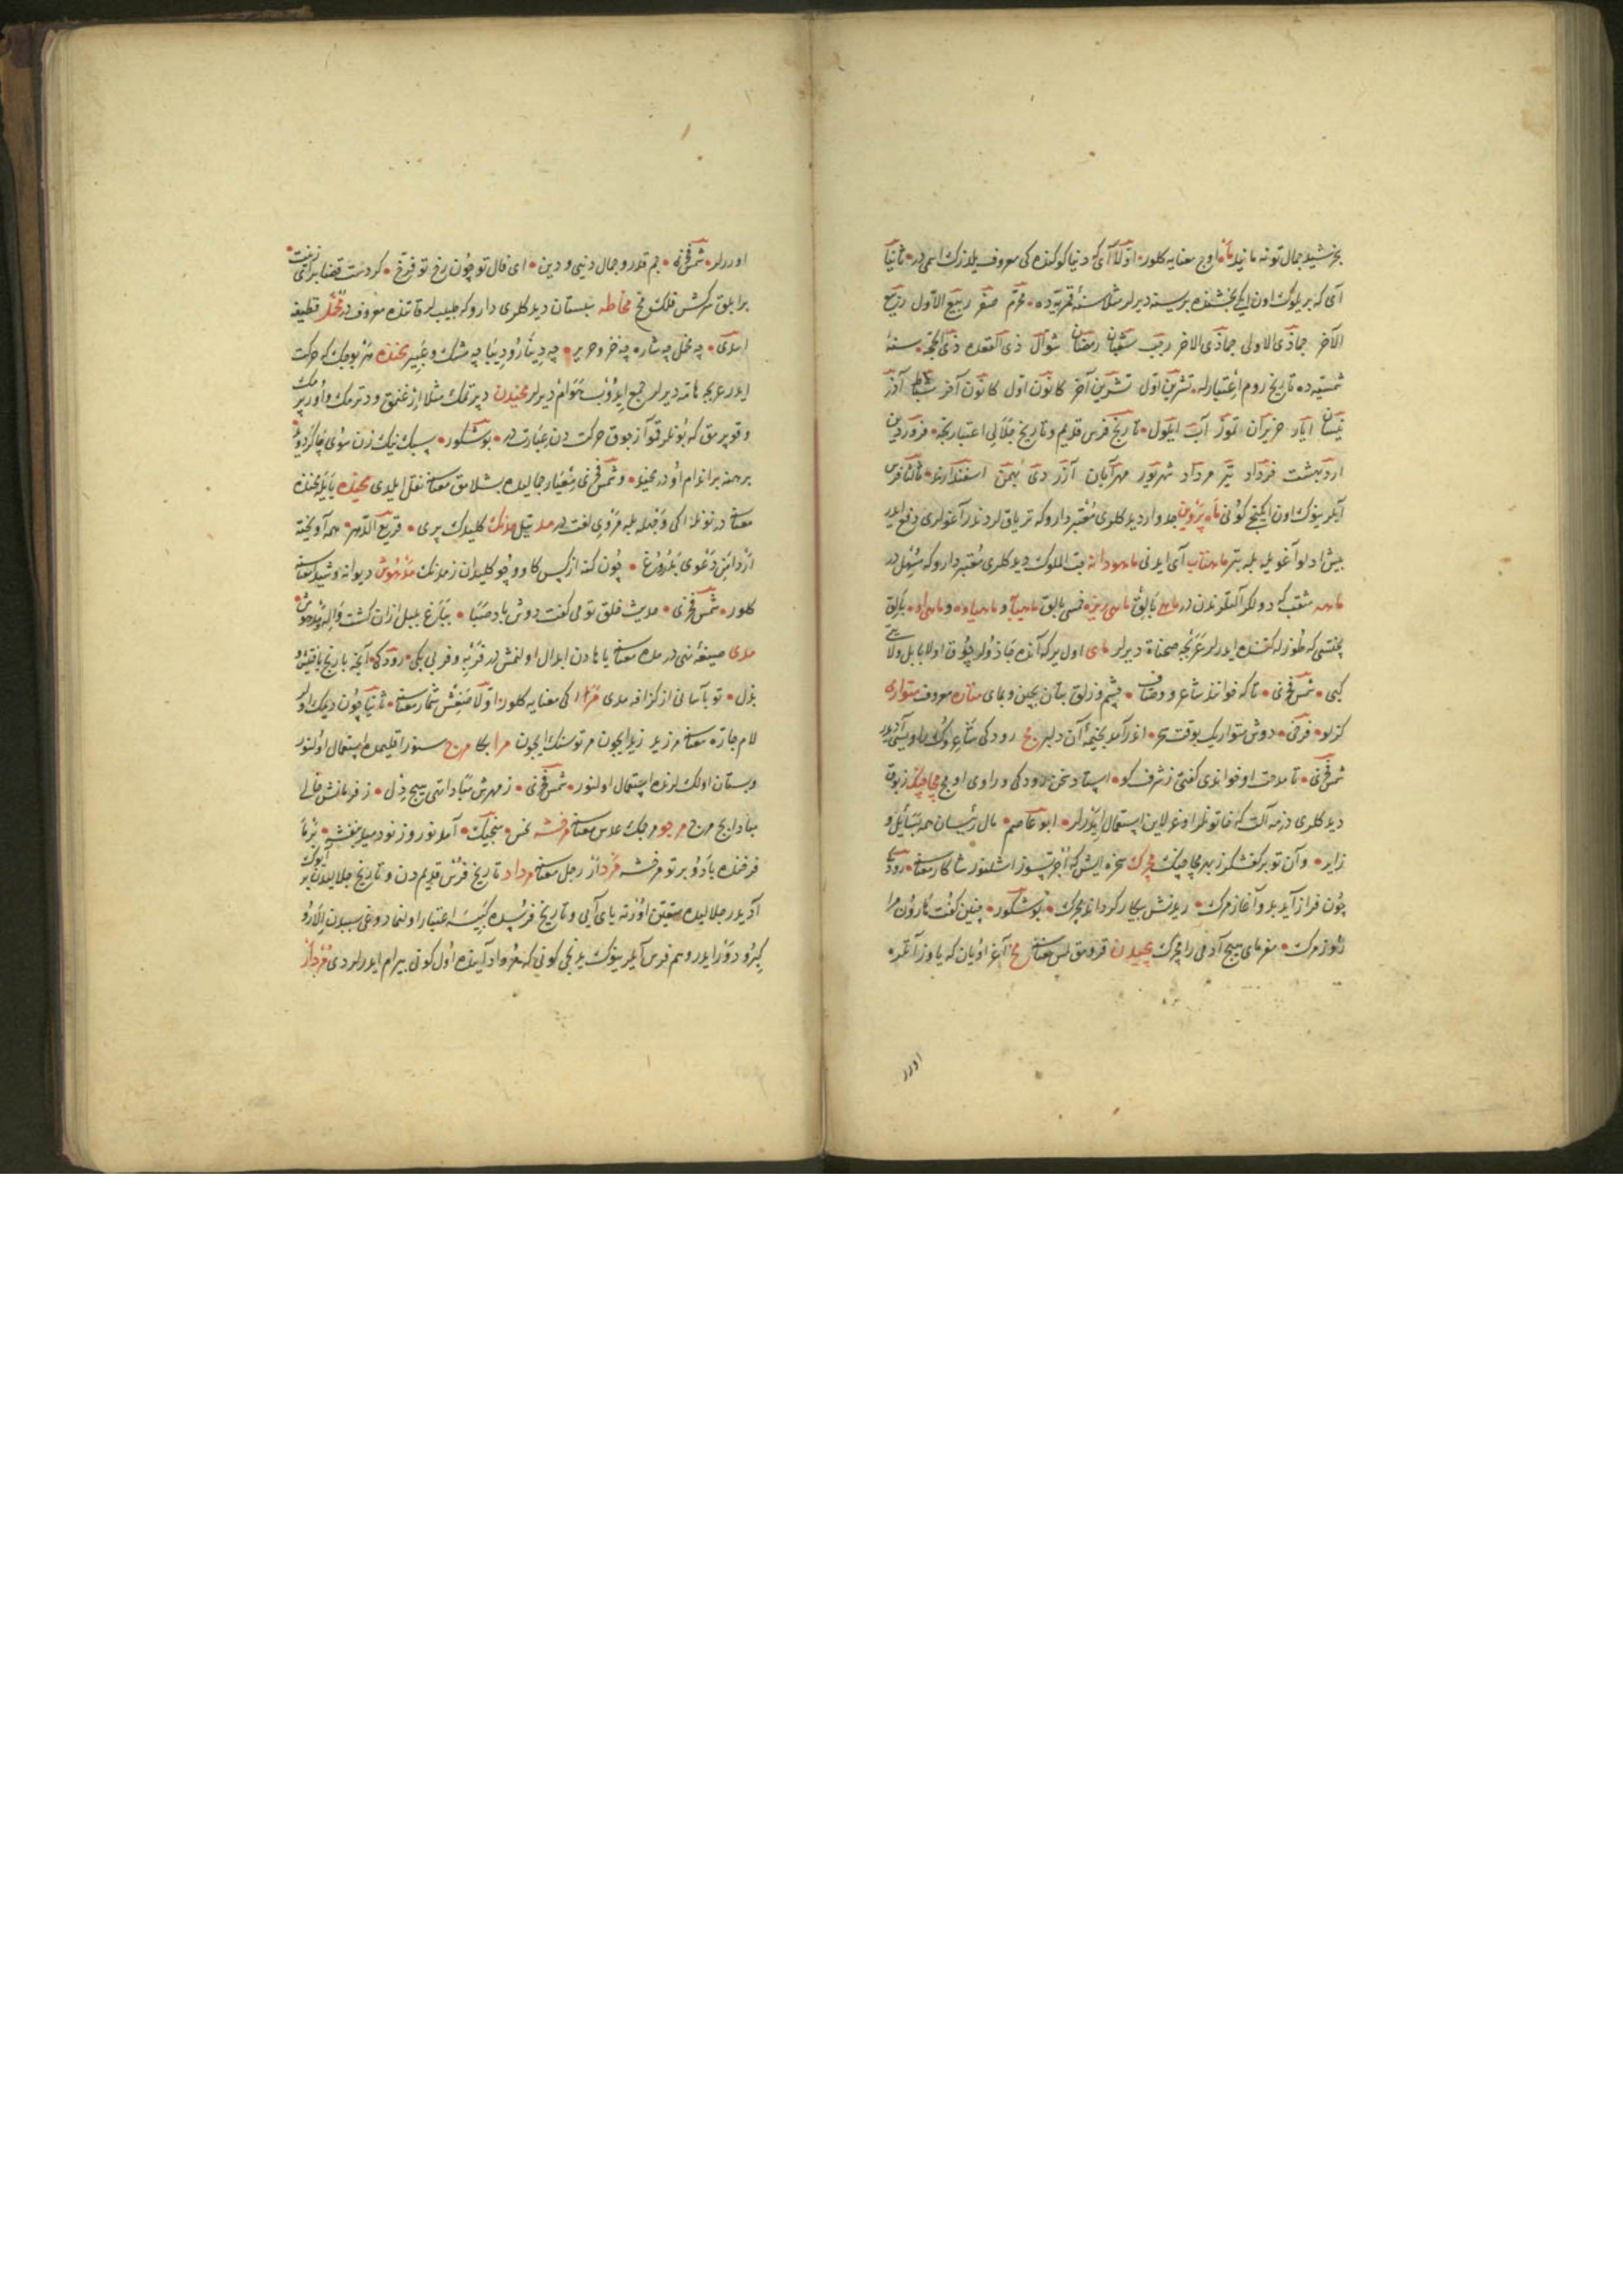 بخرشید جمال تو نه مانید ماه اوج معنایه کلور اولا آی که دنیا کوکنده کی معروف یلدزك اسمیدر ثانیا
آی که بر یلوك اون ایکی بخشنده برینه دیرلر مثلا سنهٔ قمریه ده محرم صفر ربیع الاول ربیع
الآخر جماذی الاولی جماذی الاخر رجب شعبان رمضان شوال ذی القعده ذی الحجه سنهٔ
شمسیه ده تاریخ روم اعتبارله تشرین اول تشرین آخر کانون اول کانون آخر شباط آذر
نیسان ایار حزیران تموز آب ایلول تاریخ فرس قدیم و تاریخ جلالی اعتباریجه فروردین
اردیبهشت خرداد تیر مرداد شهریور مهر آبان آزر دی بهمن اسفندارمذ ثالثا فرس
آیلرینوك اون ایکینجی کونی ماه پروین جدوار دیدکلری معتبر دارو که تریاق لردندر آغولری دفع ایدر
بیش ادلو آغویله بله بتر ماهتاب آی ایدنی ماهودانه حب الملوك دیدکلری معتبر دارو که مسهل در
ماهه مثقب که دولکر آلتلرندندر ماهی بالق ماهی ریزه خسی بالق ماهیآبه و ماهیاوه و ماهیاوه بالق
یخنیسی که طوزله ایدرلر عربجه صحناة دیرلر مای اول یر که آنده جاذولر چوق اولا بابل ولایتی
کبی شمس فخری تا که خوانند شاعر و وصاف چشم و زلف بتان بچین و بمای مناره معروف متواری
کزلو فرخی دوش متواریك بوقت سحر اندر آمد بخیمه آن دلبر مج رودکی شاعروك راویسی آدیدر
شمس فخری تا مدحت او خواندی گفتی ز شرف کو استاد سخن رودکی و راوی او مج مچاچنك زبوق
دیدکلری درمه آلت که خاتونلر اوغرلاین استعمال ایدرلر ابو عاصم مال رئیسان همه بسائل و
زایر وآن تو بر کفشکر ز بهر مچاچنك مجرك سخره ایش که اجرتسوز اشلنور شاکار معناسنه رودکی
چون فراز آید بدو آغاز مرك ریدنش بیکار کرداند مجرك بوشکور چنین گفت هارون مرا
روز مرك مفرمای هیچ آدمی را مجرك مچیدن قزومق لس معناسنه مخ آغر اویان که یاوز آتلره
اورر
اوررلر شمس فخری جم قدر و جمال دنیی و دین ای فال تو چون رخ تو فرخ کرد دست قضا برای زینت
بر ابلق سرکش فلك مخ مخاطه سبستان دیدکلری دارو که طبیبلر قاتنده معروف در مخمل قطیفه
اسدی چه مخمل چه شاره چه خز و حریر چه دینار و دیبا چه مشك و عبیر مخنده هر بوجك که حرکت
ایدر عربجه هامه دیرلر جمع ایدوب هوام دیرلر مخیدن دپرتمك مثلا ارغنمق و دترمك و اورپرمك
و قوپرمق که بونلر قوآ ز جوق حرکت دن عبارتدر بوشکور سبك نیك زن سوی چاکر دوید
برهنه بر اندام او در مخید و شمس فخری معیار جمالیده بشلامق معناسنه نقل ایلدی مخیده یایلمخنده
معناسنه در نونله ایکی وجهله بله مروی لغت در مد تیل مدنك کلیدك پری قریع الدهر همه آویخته
از دامن دعوی بدروغ چون کنه از کس کاو و چو کلیدان ز مدنك مدهوش دیوانه و شیدا معناسنه
کلور شمس فخری حدیث خلق تو می گفت دوش باد صبا بباغ بلبل ازان گشت واله و مدهوش
مدی صیغهٔ نهی در مده معناسنه یا هادن ابدال اولنمش در فربه و فربی بکی رودکی آنچه با رنج یافتیش و
بذل تو بآسانی از گزافه مدی مر ایکی معنایه کلور اولا منغش شمار معناسنه ثانیا چون دیمك اولور
لام جاره معناسنه مر زید زید ایچون مر تو سنك ایچون مرا بکا مرج سنور اقلیمده استعمال اولنور
و بستان اولكلرنده استعمال اولنور شمس فخری ز مهرش مبادا تهی هیچ دل ز فرمانش خالی
مباد ایچ مرج مرجو مرجك عدس معناسنه مرخشه نحس منجیك آمد نوروز نو دمید بنفشه بر ما
فرخنده باد و بر تو مرخشه مرداز رجل معناسنه مرداد تاریخ فرس قدیم دن و تاریخ جلالیدن بر آیوك
آدیدر جلالیده متعین اورته یای آیی و تاریخ فرسیده کبیسه اعتبار اولنمادوغی سببدن ایلرو
کیرو دور ایدر و هم فرس آیلرینوك یدنجی کونی که مرداد آینده اول کونی بیرام ایدرلردی مردار